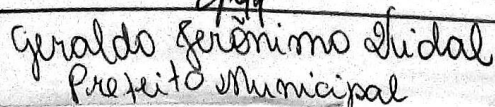 Geraldo Jerônimo Vidal
Prefeito Municipal